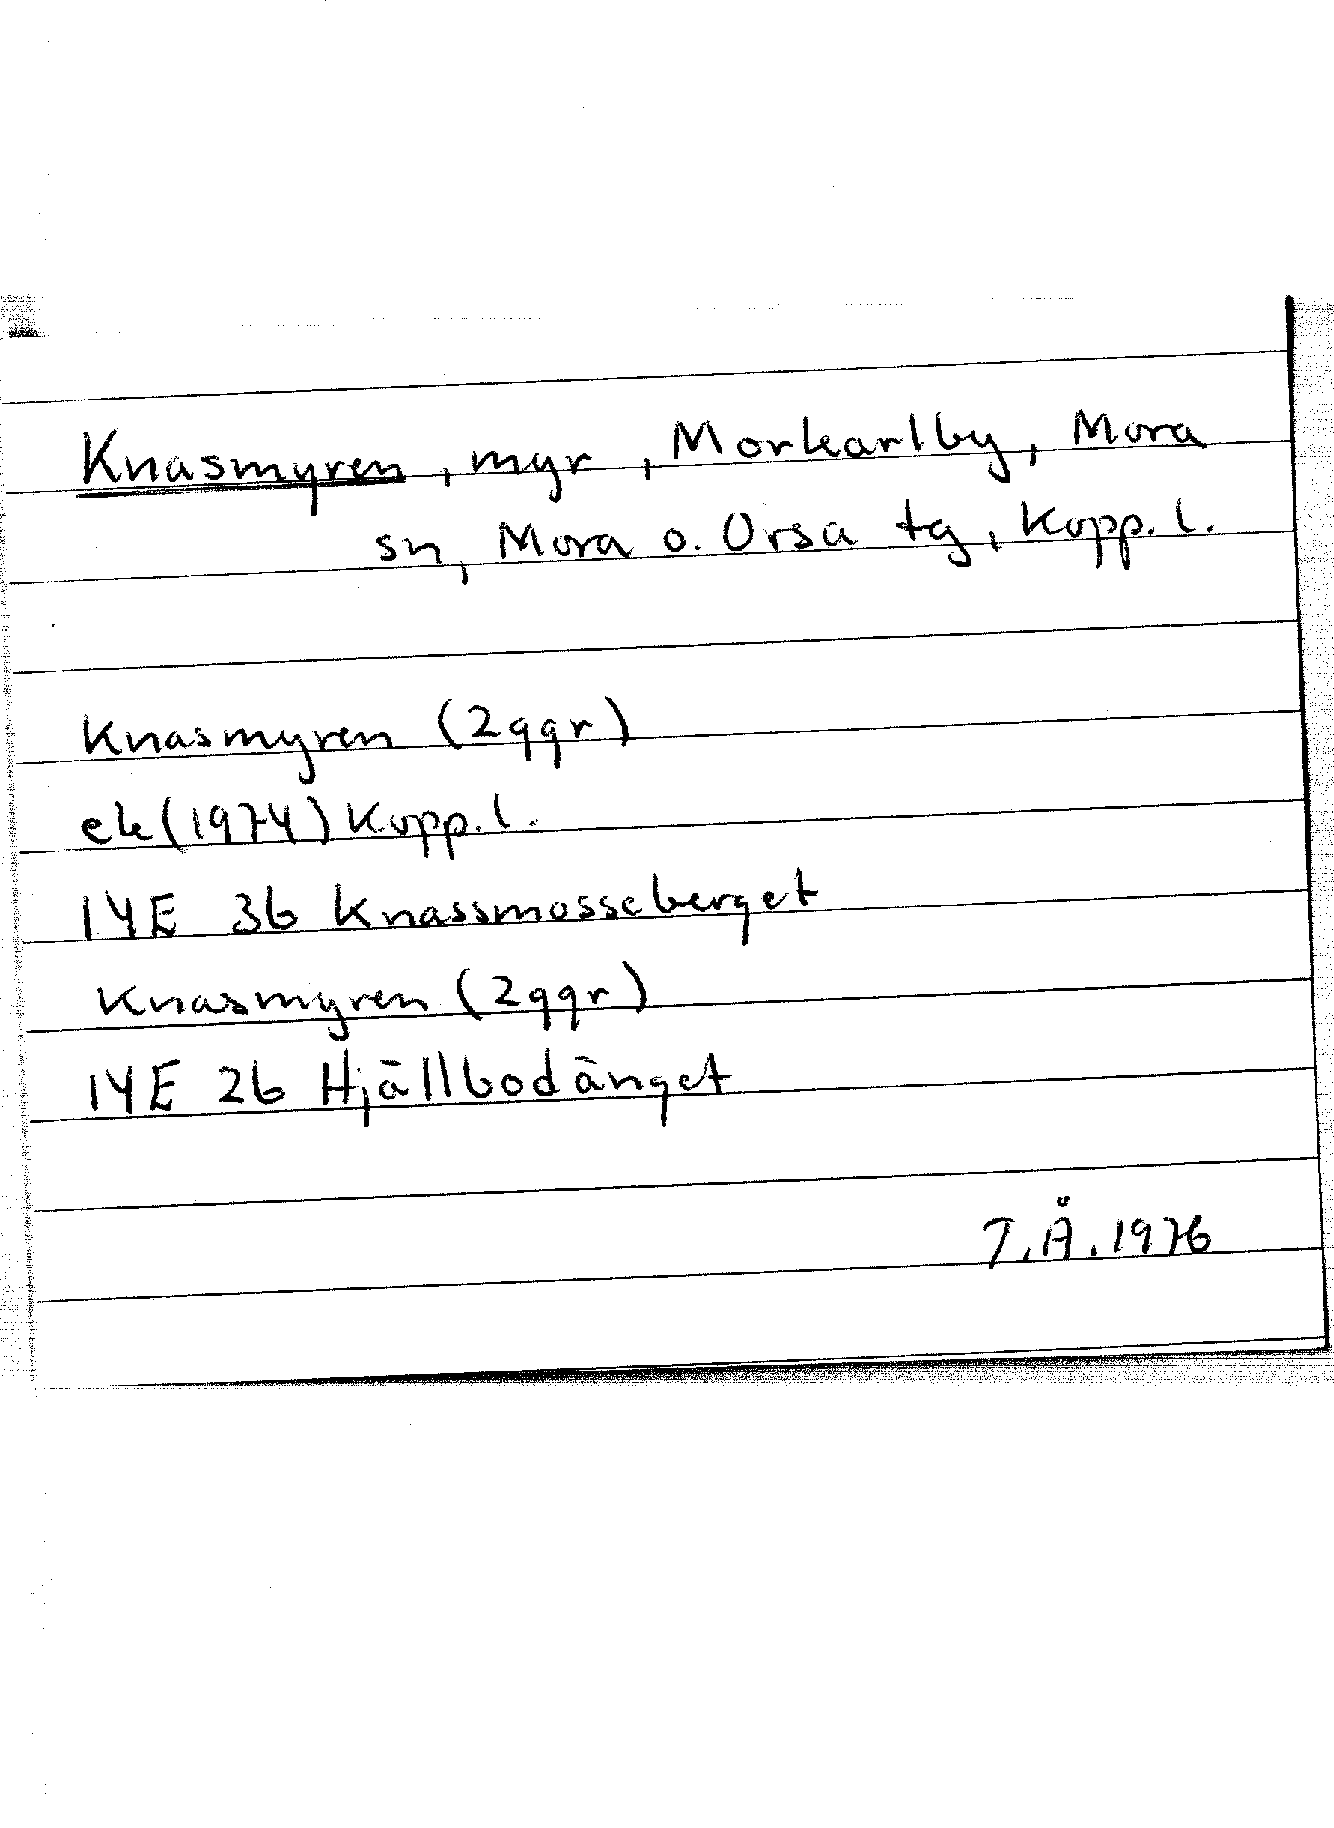 Knasmyren, myr, Morkarlby, Mora
sn, Mora o. Orsa tg, Kopp. l.
Knasmyren (2ggr)
ek (1974) Kopp. l.
14E 3b Knassmosseberget
Knasmyren (2ggr)
14E 2b Hjällbodänget
T.Å. 1976